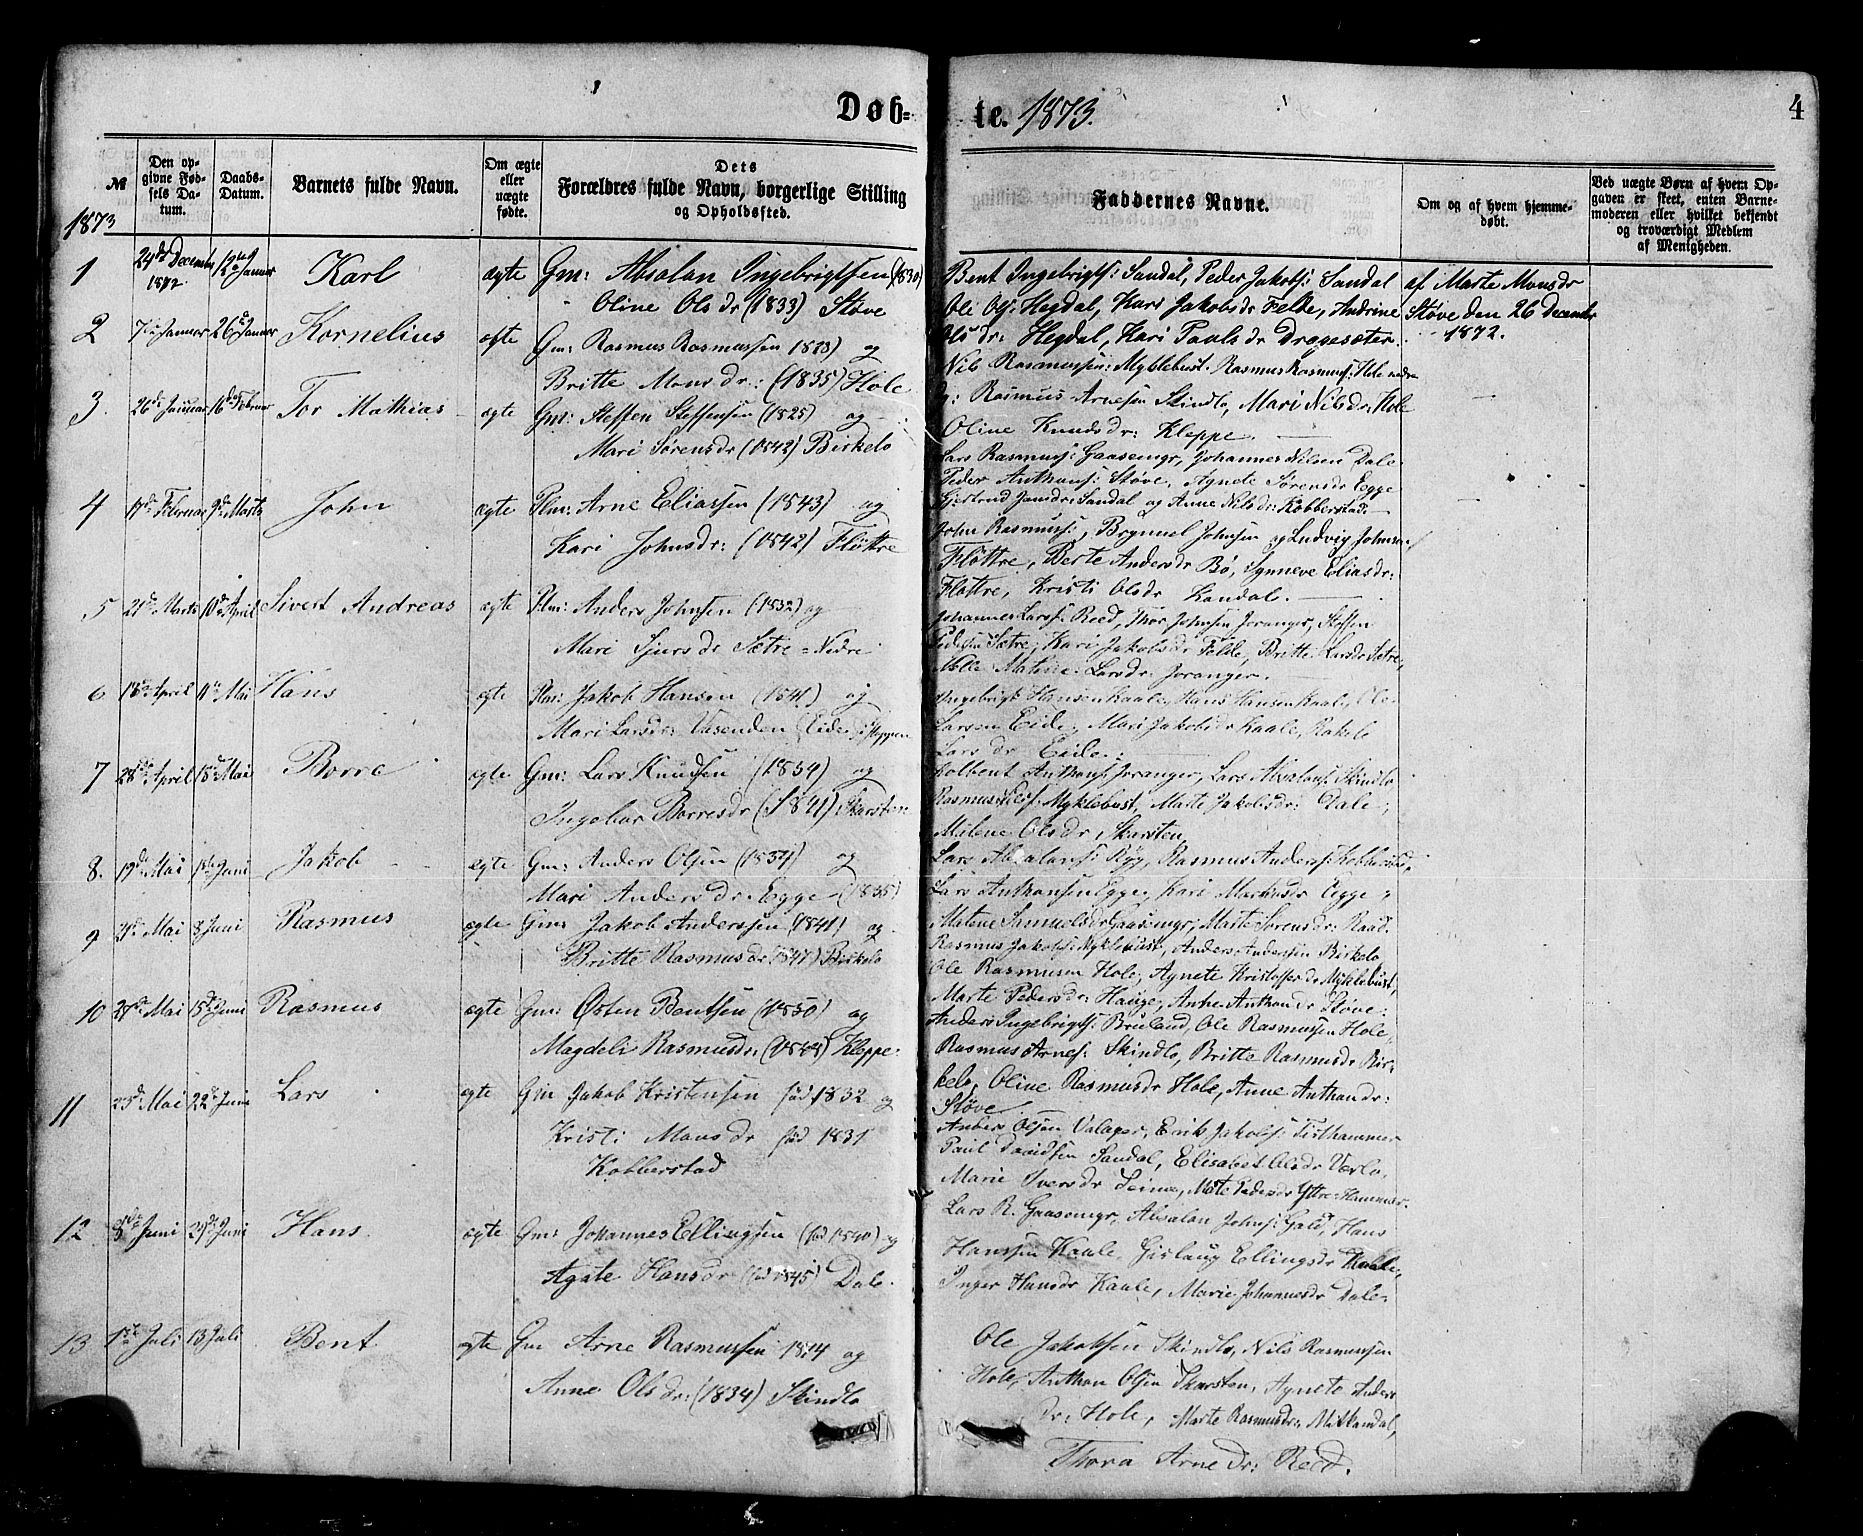 Døb-
te. 1873.
4
№
Den op-
givne Fød-
sels Da-
tum.
Daabs-
Datum.
Barnets fulde Navn.
Om ægte
eller
uægte
fødte.
Dets
Forældres fulde Navn, borgerlige Stilling
og Opholdssted.
Faddernes Navne.
Om og af hvem hjemme-
døbt.
Ved uægte Børn af hvem Op-
gaven er skeet, enten Barne-
moderen eller hvilket bekjendt
og troværdigt Medlem
af Menigheden.
1873
1 24de December 1872 12te Januar Karl ægte Gm: Absalan Ingebrigtsen (1830)
Oline Olsdr (1833) Støve
Bent Ingebrigts: Sandal, Peder Jakobs: Sandal
Ole Ols: Hegdal, Kari Jakobsdr Felde, Andrine
Olsdr: Hegdal, Kari Paulsdr Dragesæter.
af Marte Monsdr
Støve den 26 December
1872.
2 7de Januar 26de Januar Kornelius ægte Gm: Rasmus Rasmussen og
Britte Monsdr: (1835) Hole
Nils Rasmussen: Myklebust. Rasmus Rasmus: Hole
Rasmus Arnesen Skindlo, Mari Nilsdr: Hole
Oline Knudsdr: Kleppe.
3. 26de Januar 16de Februar Tor Mathias ægte Gm: Steffen Steffensen (1825) og
Mari Sørensdr (1842) Birkelo
Lars Rasmus: Gaasemyr, Johannes Nilsen Dale
Peder Anthons: Støve, Agnete Sørensdr Egge
Gjertrud Jonsdr: Sandal og Anne Nilsdr: Kobberstad.
4 17de Februar 9de Marts John ægte Plm: Arne Eliassen (1843) og
Kari Johnsdr: (1842) Fløttre
John Rasmus:, Brynnel Johnsen og Ludvig Johnsen
Fløttre, Berte Andersdr Bø, Synneve Eliasdr:
Fløttre, Kristi Olsdr Kandal.
5 21de Marts 10de April Sivert Andreas ægte Plm: Anders Johnsen (1832) og
Mari Sjursdr Sætre-Nedre
Johannes Lars: Reed, Thor Johnsen Joranger, Steffen
Pedersen Sætre, Kari Jakobsdr Felde, Britte Larsdr Sætre,
Matene Larsdr: Joranger.
6 18de April 11te Mai Hans ægte Plm: Jakob Hansen (1841) og
Mari Larsdr: Vasenden (Eide)
Ingebrigt Hansen Kaale, Hans Hansen Kaale, Ole
Larsen Eide, Mari Jakobsdr Kaale, Rakele
Larsdr Eide.
7 28de April 18de Mai Borre ægte Gm: Lars Knudsen (1834) og
Ingebor Borresdr (1841) Skarsten
Kolbent Anthons: Joranger, Lars Absalons: Skindlo
Rasmus Nils: Myklebust, Marte Jakobsdr: Dale,
Milene Olsdr, Skarsten,
8. 19de Mai 1ste Juni Jakob ægte Gm: Anders Olsen (1834) og
Mari Andersdr: Egge (1835)
Lars Absalons: Ryg, Rasmus Anders: Kobberstad,
Lars Anthonsen Egge, Kari Egge,
Matene Samuelsdr Gaasemyr, Marte Sørensdr: Raad.
9 Mai 8 Juni Rasmus ægte Gm: Jakob Anderssen (1841) og
Britte Rasmusdr (1847) Birkelo
Rasmus Jakobs: Myklebust, Anders Andersen Birkelo
Ole Rasmusen Hole, Agnete Kristoffersdr Myklebust,
Marte Pedersdr: Hauge, Anne Anthondr Støve:
10 Mai 15de Juni Rasmus ægte Gm: Østen Bentsen (1850) og
Magdeli Rasmusdr: (1844) Kleppe
Anders Ingebrigts: Bruland, Ole Rasmussen Hole,
Rasmus Arnes: Skindlo, Britte Rasmusdr Bir-
kelo, Oline Rasmusdr Hole, Anne Anthondr:
Støve
11 23de Mai 22de Juni Lars ægte Gm Jakob Kristensen fød 1832 og
Kristi Monsdr fød 1831
Kobberstad
Anders Olsen Valager, Erik Jakobs: Fisthammer
Paul Davidsen Sandal, Elisabet Olsdr Værlo,
Marie Iversdr Seime, Mate Pedersdr Yttre-Hammer.
12 8de Juni 29de Juni Hans. ægte Gm: Johannes Ellingsen (fød 1840) og
Agate Hansdr (fød 1845) Dale.
Lars R. Gaasemyr, Absalan Johns: Gald, Hans
Hanssen Kaale, Gjertaug Ellingsdr Kaale,
Inger Hansdr Kaale, Marie Johannesdr Dale
13 1ste Juli 13 Juli Bent ægte Gm Arne Rasmussen og
Anne Olsdr: (1834) Skindlo
Ole Jakobsen Skindlo, Nils Rasmussen
Hole, Anthon Olsen Skarsten, Agnete Anders
dr: Hole, Marte Rasmusdr: Myklandal,
Thora Arnedr: Reed.